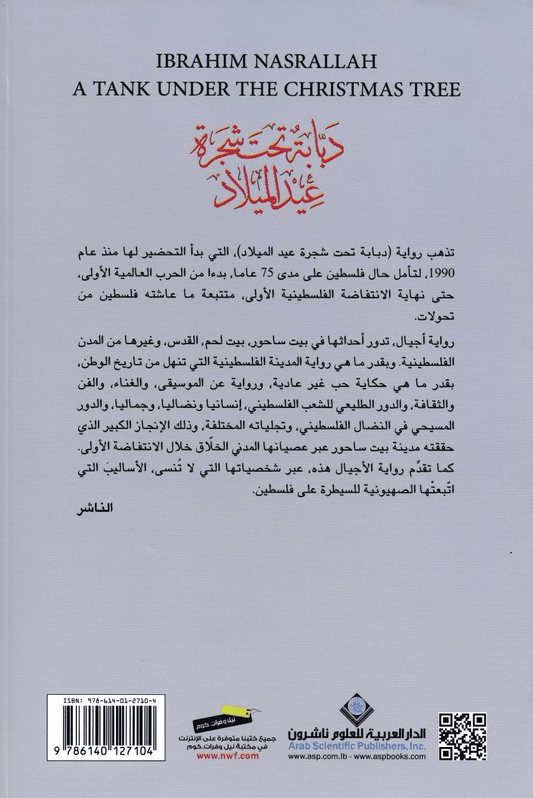 IBRAHIM NASRALLAH
A TANK UNDER THE CHRISTMAS TREE
دَبّابة تحت شجرة
عِيْد الميلاد
تذهب رواية (دبابة تحت شجرة عيد الميلاد)، التي بدأ التحضير لها منذ عام
1990، لتأمل حال فلسطين على مدى 75 عاما، بدءا من الحرب العالمية الأولى،
حتى نهاية الانتفاضة الفلسطينية الأولى، متتبعة ما عاشته فلسطين من
تحولات.
رواية أجيال، تدور أحداثها في بيت ساحور، بيت لحم، القدس، وغيرها من المدن
الفلسطينية. وبقدر ما هي رواية المدينة الفلسطينية التي تنهل من تاريخ الوطن،
بقدر ما هي حكاية حب غير عادية، ورواية عن الموسيقى، والغناء، والفن
والثقافة، والدور الطليعي للشعب الفلسطيني، إنسانيا ونضاليا، وجماليا، والدور
المسيحي في النضال الفلسطيني، وتجلياته المختلفة، وذلك الإنجاز الكبير الذي
حققته مدينة بيت ساحور عبر عصيانها المدني الخلّاق خلال الانتفاضة الأولى.
كما تقدِّم رواية الأجيال هذه، عبر شخصياتها التي لا تُنسى، الأساليبَ التي
اتّبعتْها الصهيونية للسيطرة على فلسطين.
الناشر
ISBN: 978-614-01-2710-4
9 786140 127104
نيل وفرات.كوم
جميع كتبنا متوفرة على الإنترنت
في مكتبة نيل وفرات.كوم
www.nwf.com
الدار العربية للعلوم ناشرون
Arab Scientific Publishers, Inc.
www.asp.com.lb - www.aspbooks.com